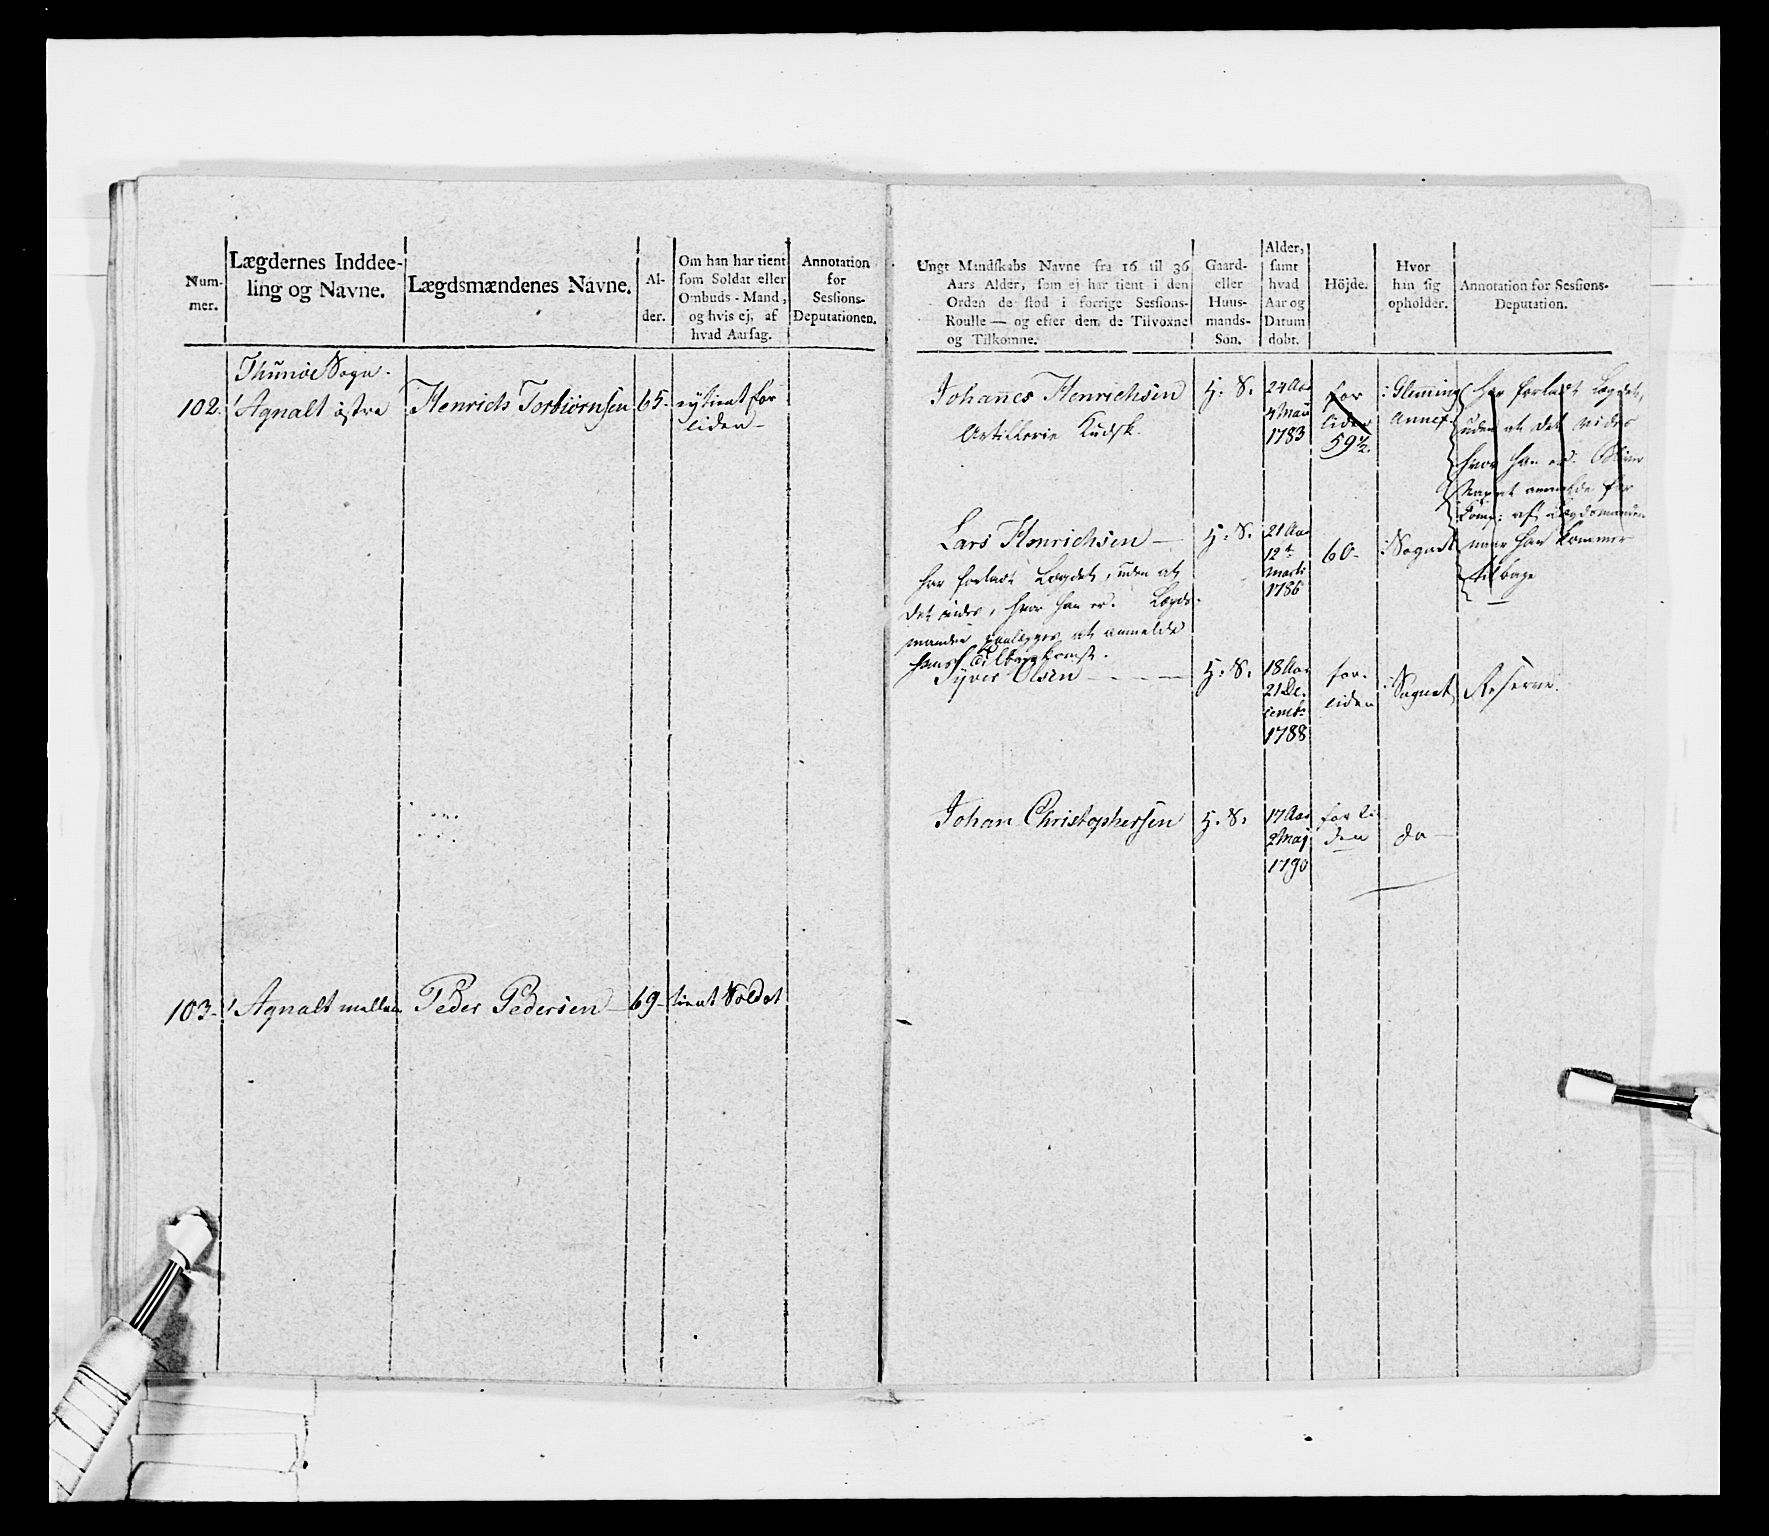 Num-
mer.
Lægdernes Inddee-
ling og Navne.
Lægdsmændenes Navne.
Al-
der.
Om han har tient
som Soldat eller
Ombuds-Mand,
og hvis ej, af
hvad Aarsag.
Annotation
for
Sessions-
Deputationen.
Thunøe Sogn.
102.
Agnalt østre
Henrich Torbiørnsen
65.
ey tient for
liden
103.
Agnalt mellem
Peder Pedersen
69
tient Soldat
Ungt Mandskabs Navne fra 16 til 36
Aars Alder, som ej har tient i den
Orden de stod i forrige Sessions-
Roulle — og efter dem de Tilvoxne
og Tilkomne.
Gaard-
eller
Huus-
mands-
Søn.
Alder,
samt
hvad
Aar og
Datum
døbt.
Höjde.
Hvor
han sig
opholder.
Annotation for Sessions-
Deputation.
Johannes Henrichsen
Artillerie Kudsk.
H. S.
24 Aar
4 Maii
1783
for
liden
59½.
Glemming
Annex
har forladt Lægdet,
uden at det vides
hvor han er.
anmelde for
Comp: af Lægdsmanden
naar han kommer
tilbage
Lars Henrichsen
H. S.
21 Aar
12te
Marti
1786
60
Sognet
har forladt Lægdet, uden at
det vides, hvor han er. Lægds-
manden paalegges at anmelde
hans tilbagekomst.
Syver Olsen
H. S.
18 Aar
21 De-
cembr
1788
for
liden
Sognet
Reserve.
Johan Christophersen
H. S.
17 Aar
2 Maj
1790
for li
den
do